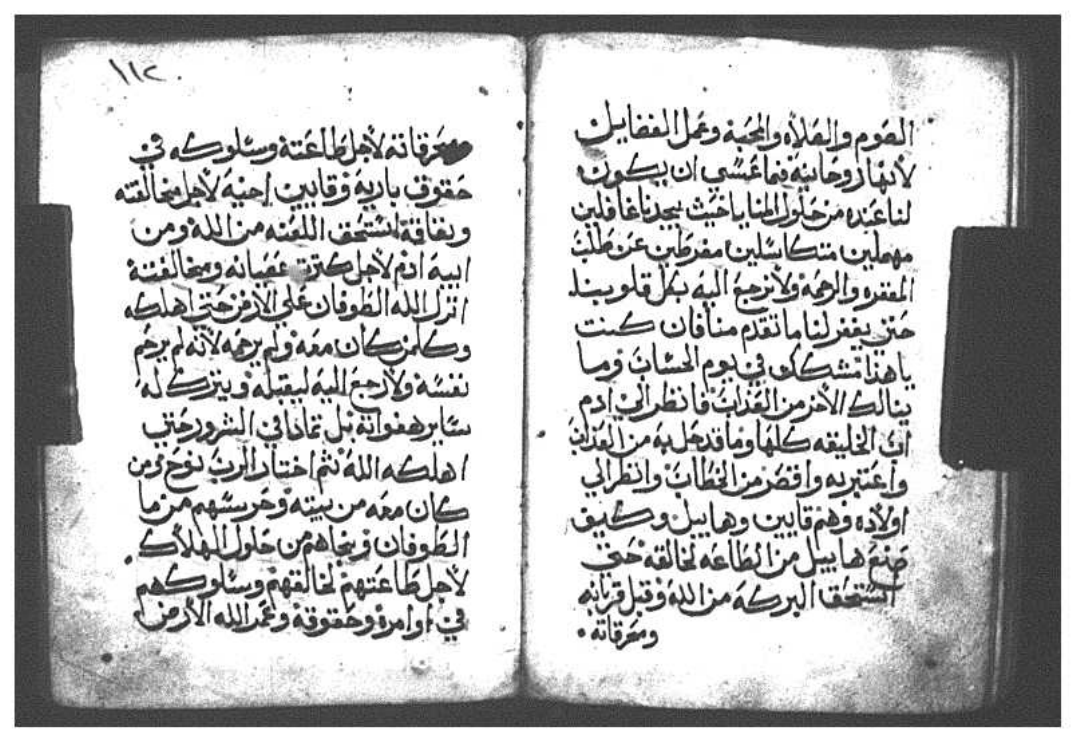 الصوم والصلاه والمحبة وعمل الفضايل
لانها روحانيه فما عسي ان يكون
لنا عنده من حلول المنايا حيث يجدنا غافلين
مهملين متكاسلين مفرطين عن طلب
المغفره والرحمة ولا نرجع اليه بكل قلوبنا
حتي يغفر لنا ما تقدم منا فان كنت
يا هذا تشك في يوم الحساب وما
ينالك الاخر من العذاب فانظر الي ادم
اب الخليقه كلها وما قد حل به من العذاب
واعتبر به واقصر من الخطاب وانظر الي
اولاده وهم قايين وهابيل وكيف
صنع هابيل من الطاعه لخالقه حتي
استحق البركه من الله وقبل قربانه
ومحرقاته
١١٢
محرقاته لاجل طاعته وسلوكه في
حقوق باريه وقايين اخيه لاجل مخالفته
ونفاقه استحق اللعنه من الله ومن
ابيه ادم لاجل كثرة عصيانه ومخالفته
انزل الله الطوفان علي الارض حتي اهلكه
وكلمن كان معه ولم يرحمه لانه لم يرحم
نفسه ولا رجع اليه ليقبله ويترك له
ساير هفواته بل تمادا في الشرور حتي
اهلكه الله ثم اختار الرب نوح ومن
كان معه من بيته وحرسهم من ما
الطوفان ونجاهم من حلول الهلاك
لاجل طاعتهم لخالقهم وسلوكهم
في اوامره وحقوقه وعمر الله الارض